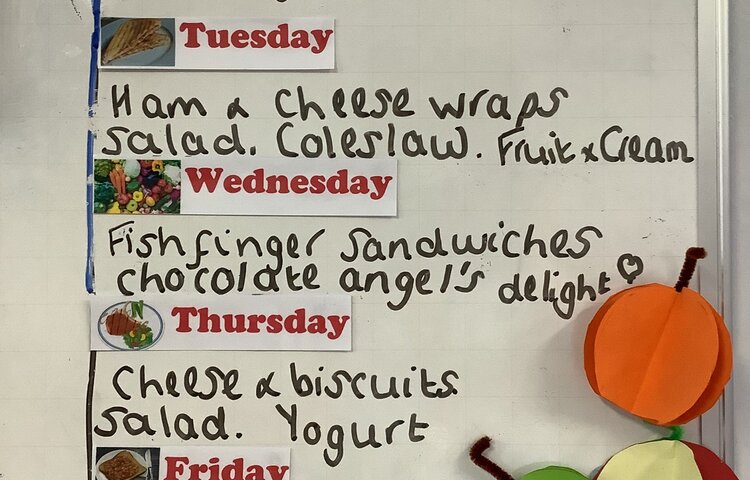 Tuesday
Ham & cheese wraps
salad. Coleslaw. Fruit & Cream
Wednesday
Fishfinger sandwiches
chocolate angel's delight
Thursday
Cheese & biscuits
salad. Yogurt
Friday